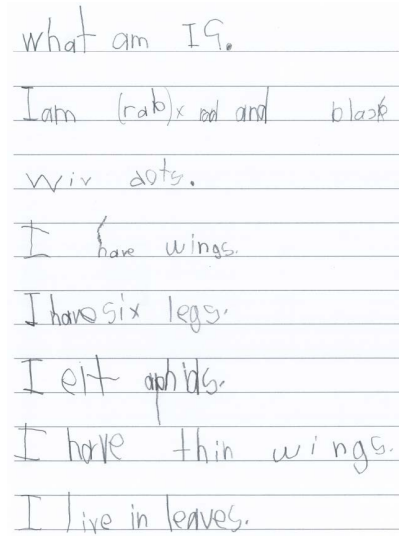 what am I?.
I am (rab)x red and black
wiv dots.
I have wings.
I have six legs.
I eit aphids.
I have thin wings.
I live in leaves.